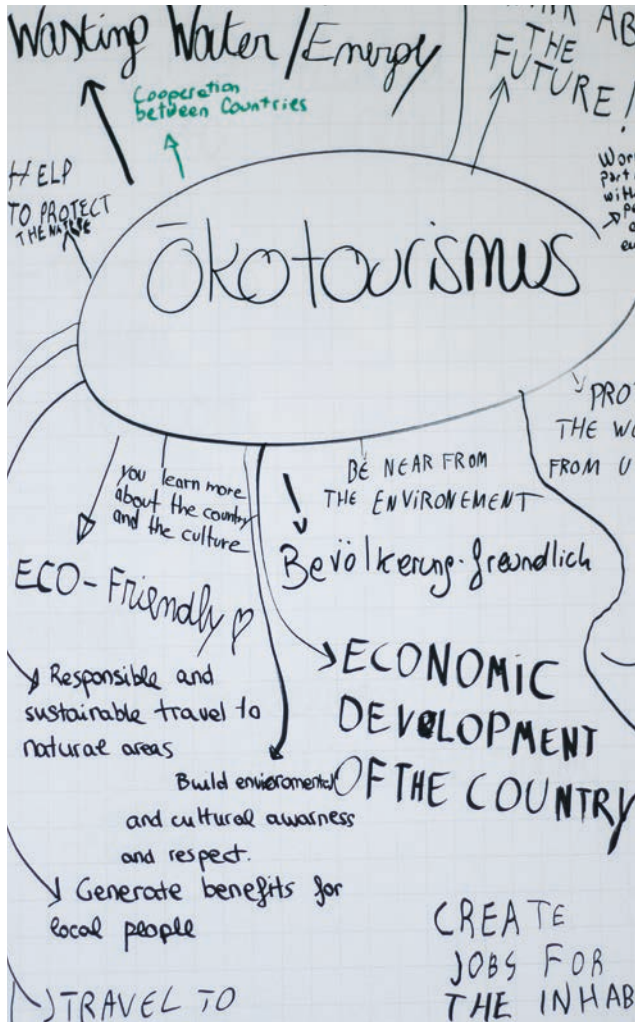 Wasting Water / Energy
THE
FUTURE!
Cooperation
between Countries
HELP
TO PROTECT
THE NATURE
with
Ökotourismus
THE
FROM
you learn more
about the country
and the culture
BE NEAR FROM
THE ENVIRONEMENT
Bevölkerung-freundlich
ECO-Friendly
ECONOMIC
DEVELOPMENT
OF THE COUNTRY
Responsible and
sustainable travel to
natural areas
Build enviromental
and cultural awarness
and respect.
Generate benefits for
local people
CREATE
JOBS FOR
THE INHAB
TRAVEL TO